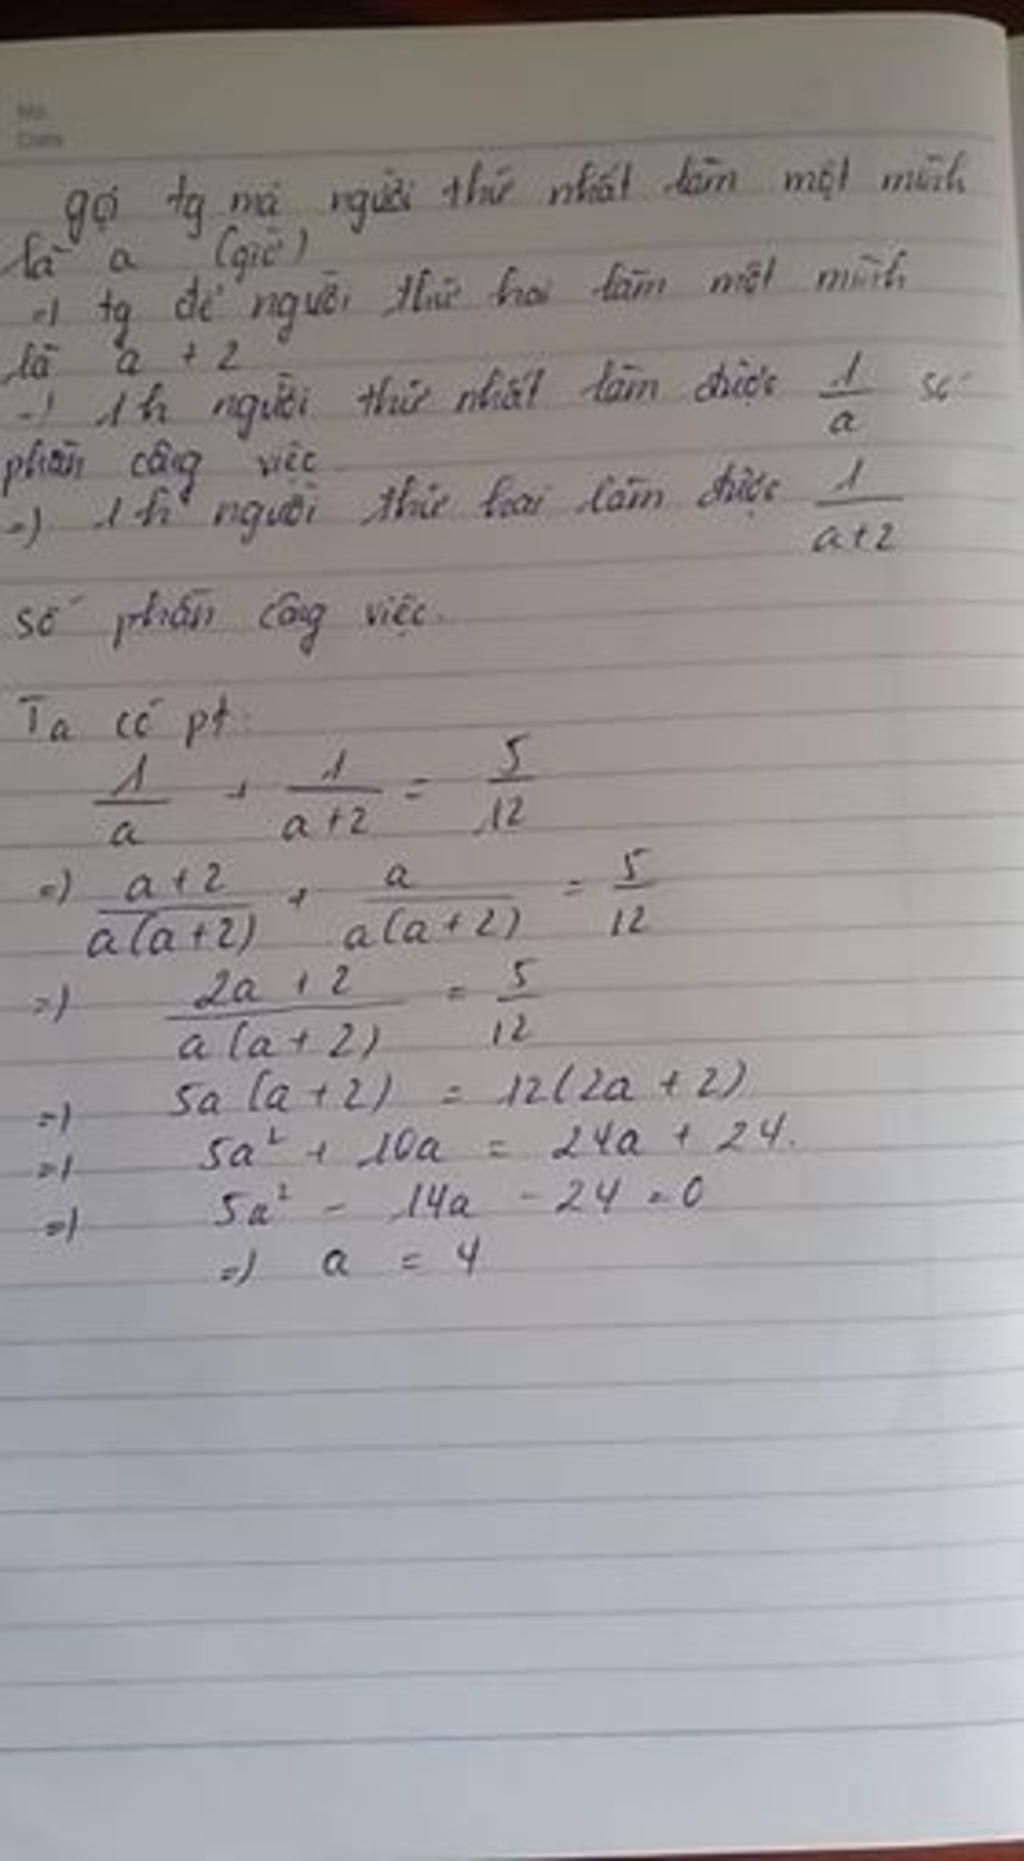 No.
Date
gọi tg mà người thứ nhất làm một mình
là a (giờ)
=) tg để người thứ hai làm một mình
là a + 2
=) 1h người thứ nhất làm được 1/a số
phần công việc
=) 1h người thứ hai làm được 1/(a+2)
số phần công việc.
Ta có pt:
1/a + 1/(a+2) = 5/12
=) (a+2)/(a(a+2)) + a/(a(a+2)) = 5/12
=) (2a+2)/(a(a+2)) = 5/12
=) 5a(a+2) = 12(2a+2)
=) 5a² + 10a = 24a + 24.
=) 5a² - 14a - 24 = 0
=) a = 4